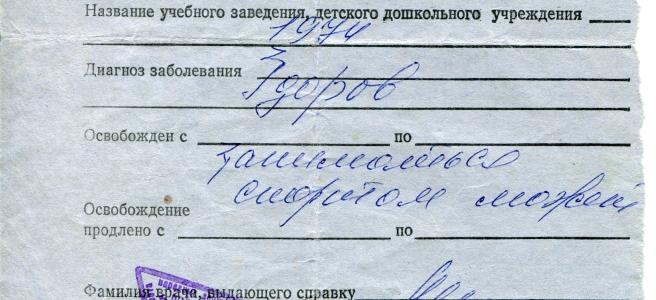 Название учебного заведения, детского дошкольного учреждения
1974
Диагноз заболевания
Здоров
Освобожден с по
заниматься
спортом может
Освобождение
продлено с по
Фамилия врача, выдающего справку